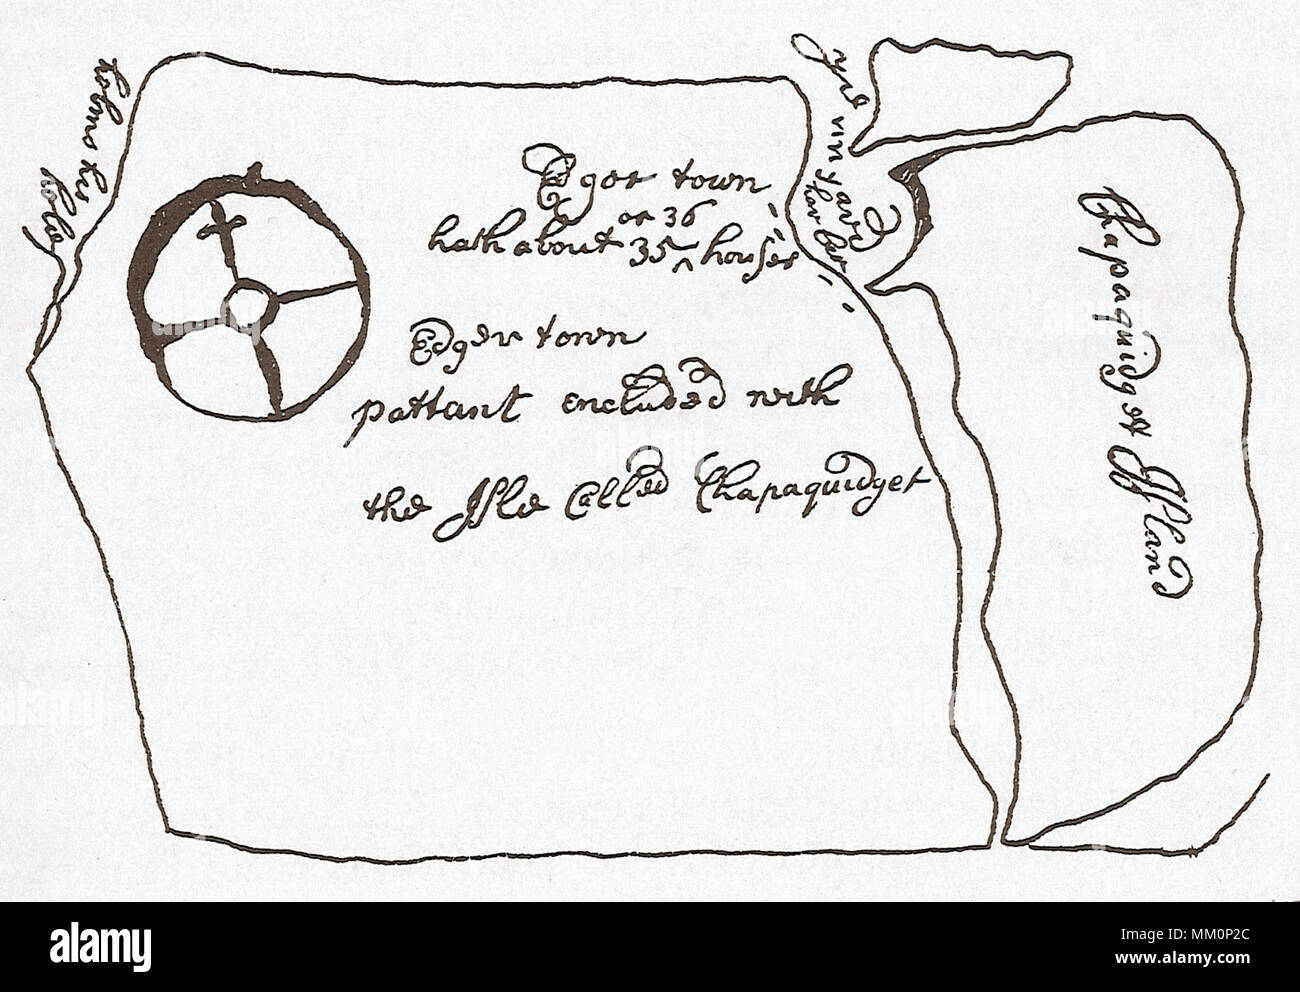 holmes his
Edger town
or 36
hath about 35 ^ houses
Edger town
pattant encluded with
the Isle Called Chapaquidget
old vinyard
Harber
Chapaquidget Island
alamy
Image ID: MM0P2C
www.alamy.com